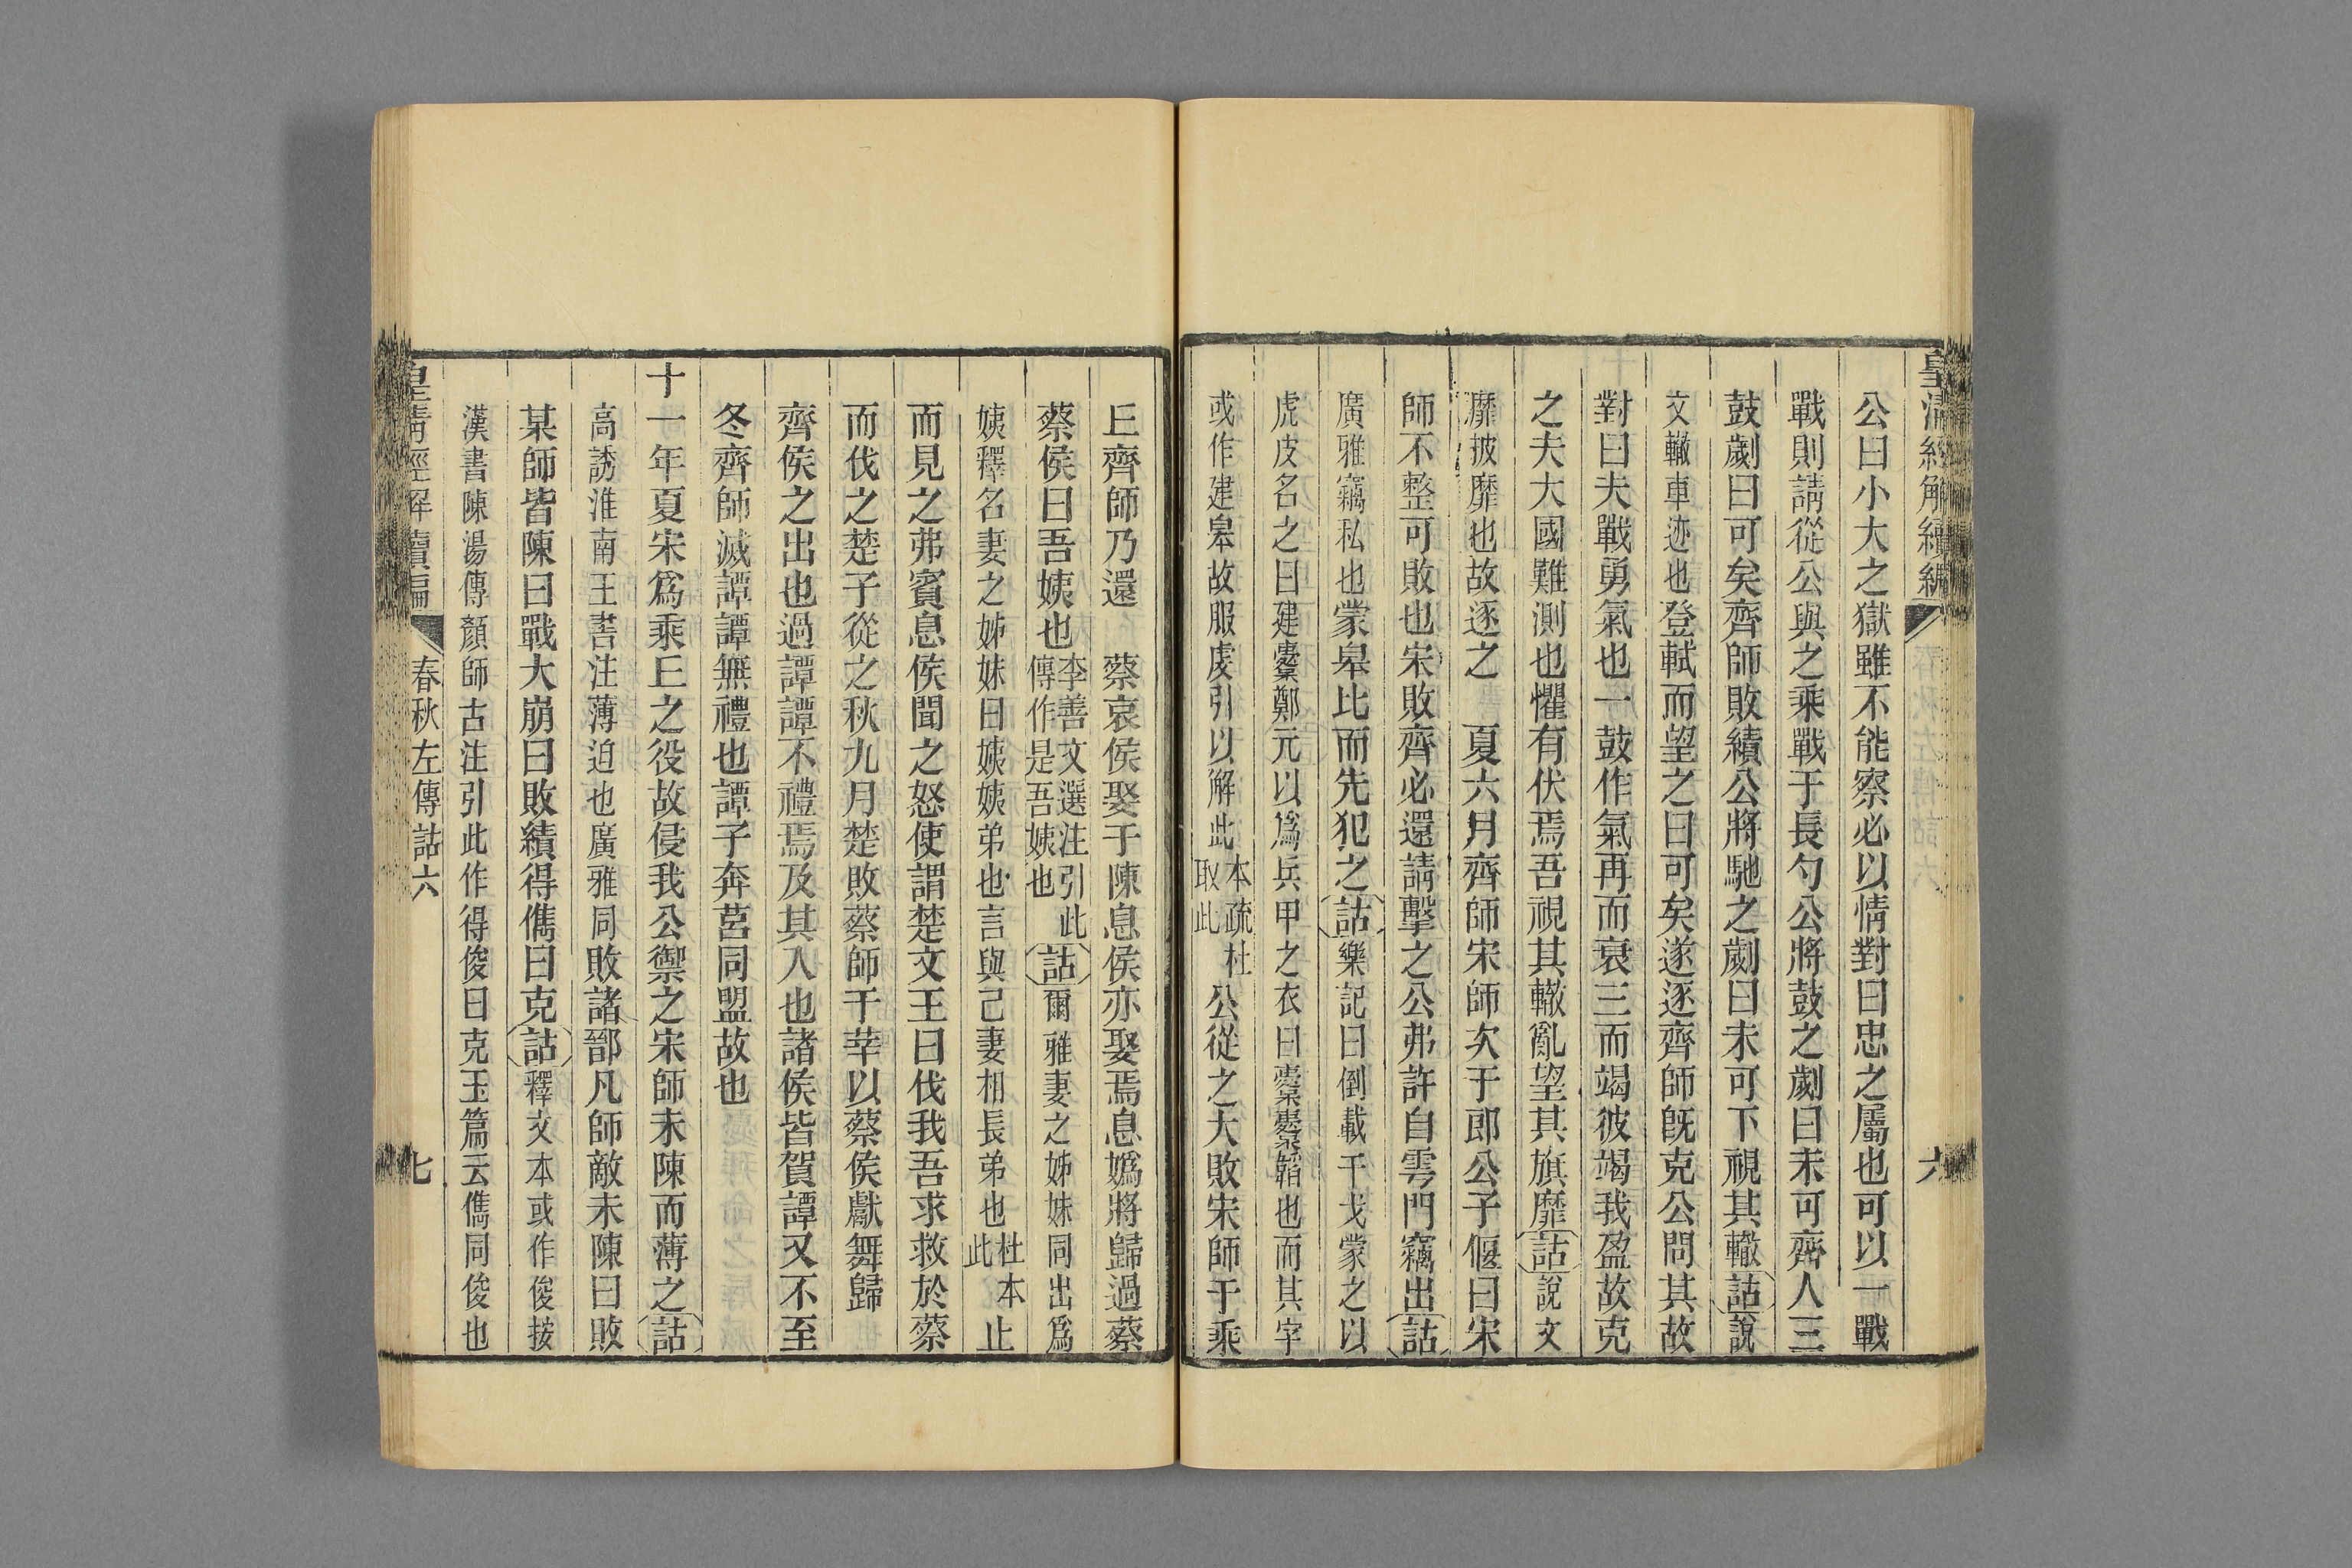 皇清經解續編
六
公曰小大之獄雖不能察必以情對曰忠之屬也可以一戰
戰則請從公與之乘戰于長勺公將鼓之劌曰未可齊人三
鼓劌曰可矣齊師敗績公將馳之劌曰未可下視其轍詁說
文轍車迹也登軾而望之曰可矣遂逐齊師旣克公問其故
對曰夫戰勇氣也一鼓作氣再而衰三而竭彼竭我盈故克
之夫大國難測也懼有伏焉吾視其轍亂望其旗靡詁說文
靡披靡也故逐之　夏六月齊師宋師次于郎公子偃曰宋
師不整可敗也宋敗齊必還請擊之公弗許自雩門竊出詁
廣雅竊私也蒙皋比而先犯之詁樂記曰倒載干戈蒙之以
虎皮名之曰建櫜鄭元以爲兵甲之衣曰櫜櫜韜也而其字
或作建皋故服虔引以解此本疏杜取此公從之大敗宋師于乘
丘齊師乃還　蔡哀侯娶于陳息侯亦娶焉息嬀將歸過蔡
蔡侯曰吾姨也李善文選注引此傳作是吾姨也詁爾雅妻之姊妹同出爲
姨釋名妻之姊妹曰姨姨弟也言與己妻相長弟也杜本此止
而見之弗賓息侯聞之怒使謂楚文王曰伐我吾求救於蔡
而伐之楚子從之秋九月楚敗蔡師于莘以蔡侯獻舞歸
齊侯之出也過譚譚不禮焉及其入也諸侯皆賀譚又不至
冬齊師滅譚譚無禮也譚子奔莒同盟故也
十一年夏宋爲乘丘之役故侵我公禦之宋師未陳而薄之詁
高誘淮南王書注薄迫也廣雅同敗諸鄑凡師敵未陳曰敗
某師皆陳曰戰大崩曰敗績得儁曰克詁釋文本或作俊按
漢書陳湯傳顏師古注引此作得俊曰克玉篇云儁同俊也
皇清經解續編
春秋左傳詁六
七